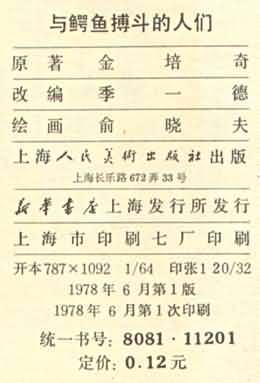 与鳄鱼搏斗的人们
原著 金培奇
改编 季一德
绘画 俞晓夫
上海人民美術出版社出版
上海长乐路672弄33号
新華書店上海发行所发行
上海市印刷七厂印刷
开本787×1092 1/64 印张1 20/32
1978年6月第1版
1978年6月第1次印刷
统一书号：8081·11201
定价：0.12元